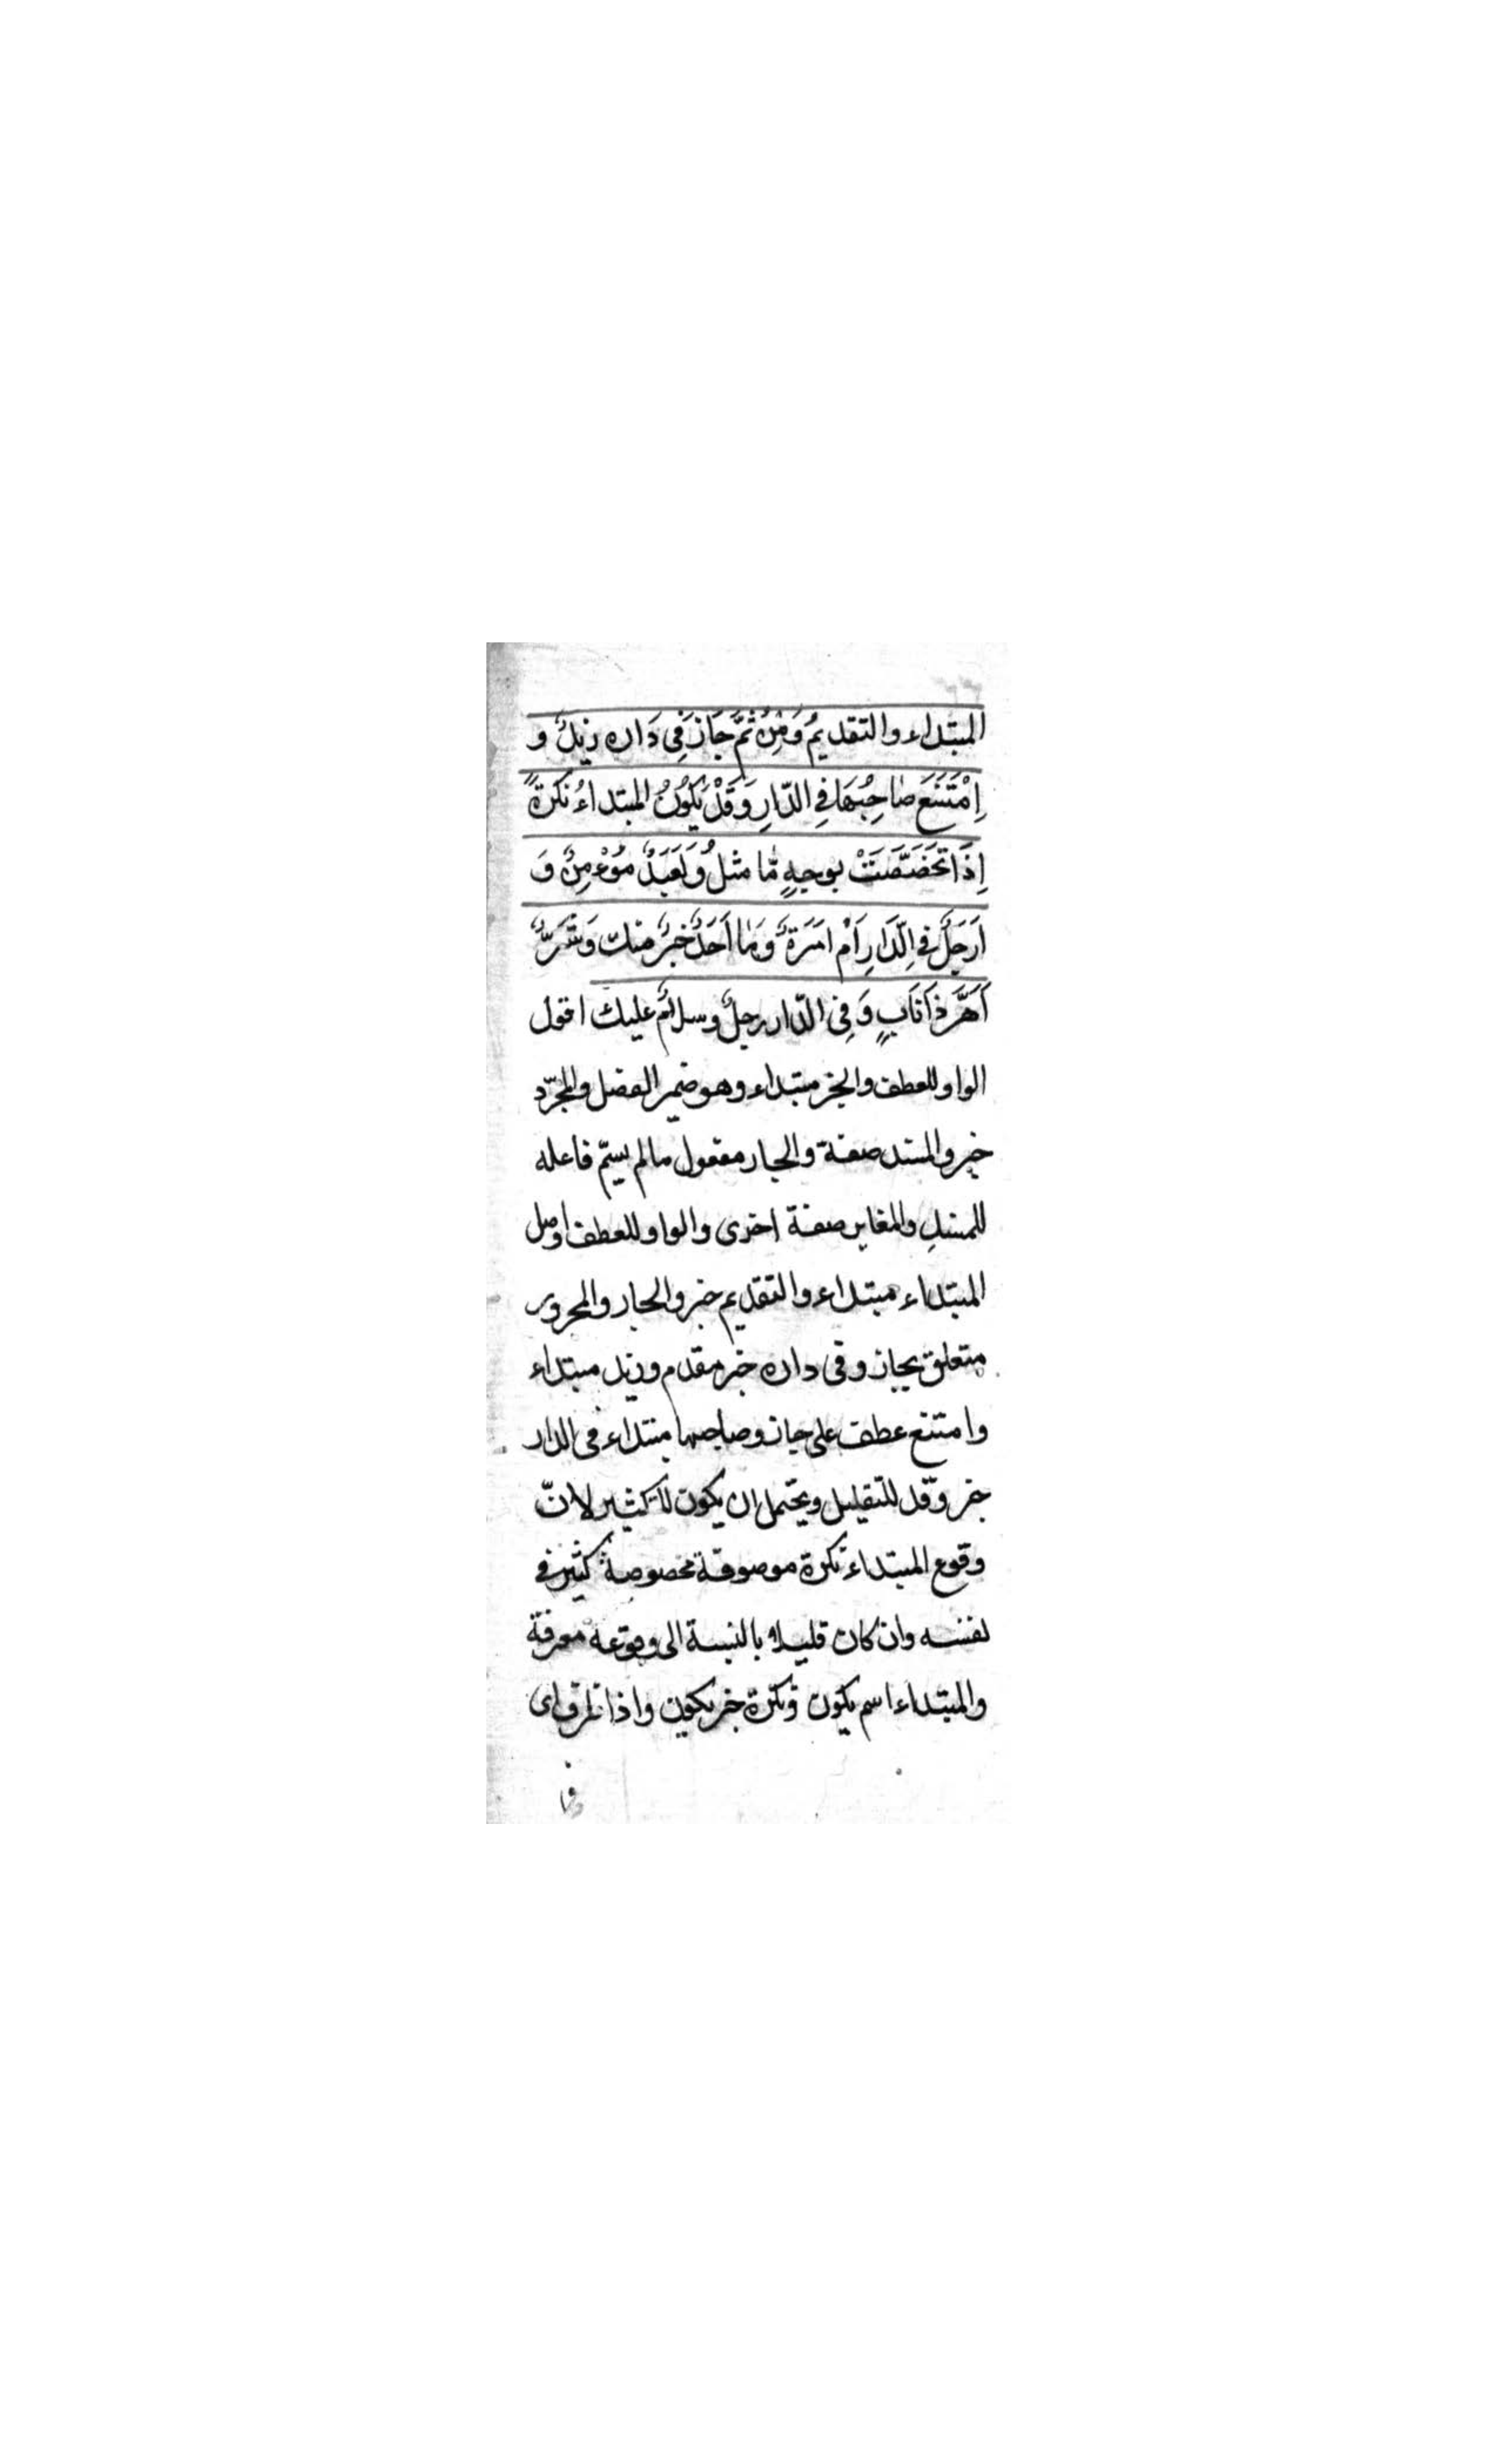 المبتداء والتقديمُ وَمِنْ ثَمَّ جَازَ فِى دَاره زيدٌ و
اِمْتَنَعَ صَاحِبُهَا فِى الدَّارِ وَقَدْ يَكُوْنُ المبتداءُ نكرةً
اِذَا تَخَصَّصَتْ بوجهٍ مّا مثلُ وَلَعَبَدٌ مُوءْمِنٌ وَ
اَرَجَلٌ فى الِدَّارِ اَمْ امَرَةٌ وَمَا اَحَدٌ خيرٌ منك وَشَرٌّ
اَهَرَّ ذَانَابٍ وَفِى الدّار رجلٌ وسلامٌ عليك اقول
الواو للعطف والخبر مبتداء وهو ضمير الفصل والمجرّد
خبر والمسند صفة والجار مفعول مالم يسمّ فاعله
للمسندِ والمغاير صفة اخرى والواو للعطف واصل
المبتداء مبتداء والتقديم خبر والجار والمجرور
متعلق بجاز وفى داره خبر مقدم وزيد مبتداء
وامتنع عطف على جاز وصاحبها مبتداء فى الدار
خبر وقد للتقليل ويحتمل ان يكون للتكثير لانّ
وقوع المبتداء نكرة موصوفة مخصوصة كثير فى
نفسه وان كان قليلا بالنسبة الى وقوعه معرفة
والمبتداء اسم يكون ونكرة خبر يكون واذا ظرف اى